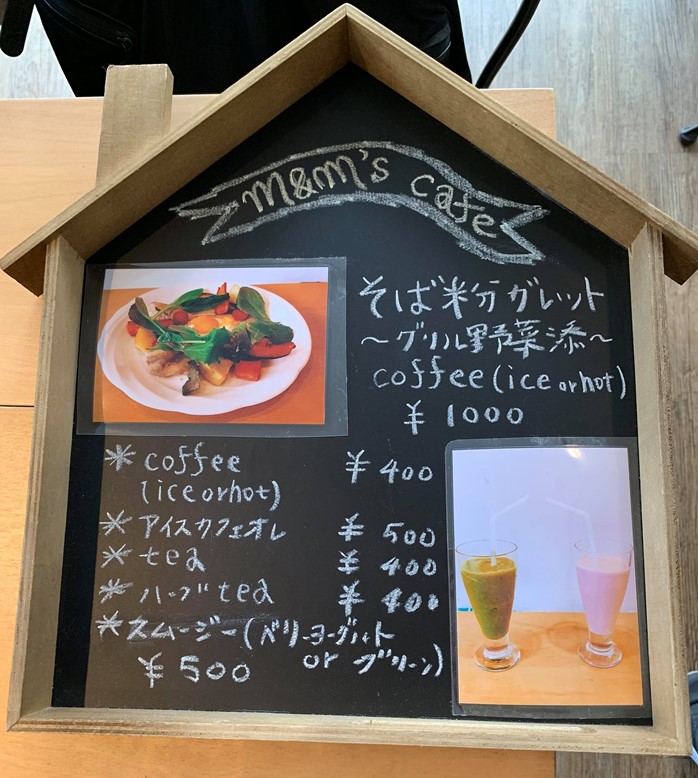 m&m's cafe
そば粉ガレット
～グリル野菜添～
coffee (ice or hot)
¥ 1000
* coffee ¥ 400
(ice or hot)
* アイスカフェオレ ¥ 500
* tea ¥ 400
* ハーブtea ¥ 400
* スムージー(ベリーヨーグルト
¥ 500 or グリーン)